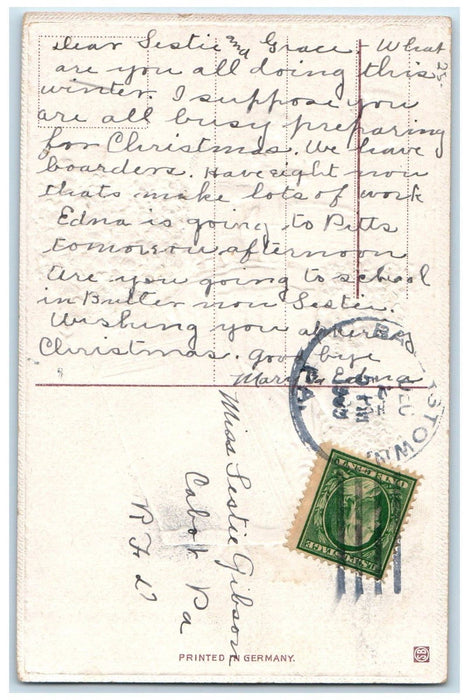 Dear Sestie and Grace. What
are you all doing this
winter. I suppose you
are all busy preparing
for Christmas. We have
boarders. Have eight now
thats make lots of work
Edna is going to Pitts
tomorrow afternoon
Are you going to school
in Butler now Sestie.
Wishing you a Merry
Christmas. good bye
Mary & Edna
Miss Sestie Gibson
Cabot Pa
R F D
PA.
U.S. POSTAGE
ONE CENT
PRINTED IN GERMANY.